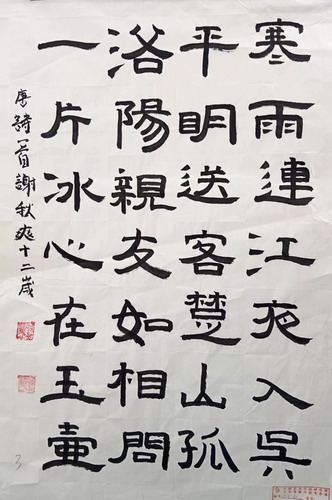 寒雨連江夜入吳
平明送客楚山孤
洛陽親友如相問
一片冰心在玉壺
唐詩一首謝秋爽十二歲
3